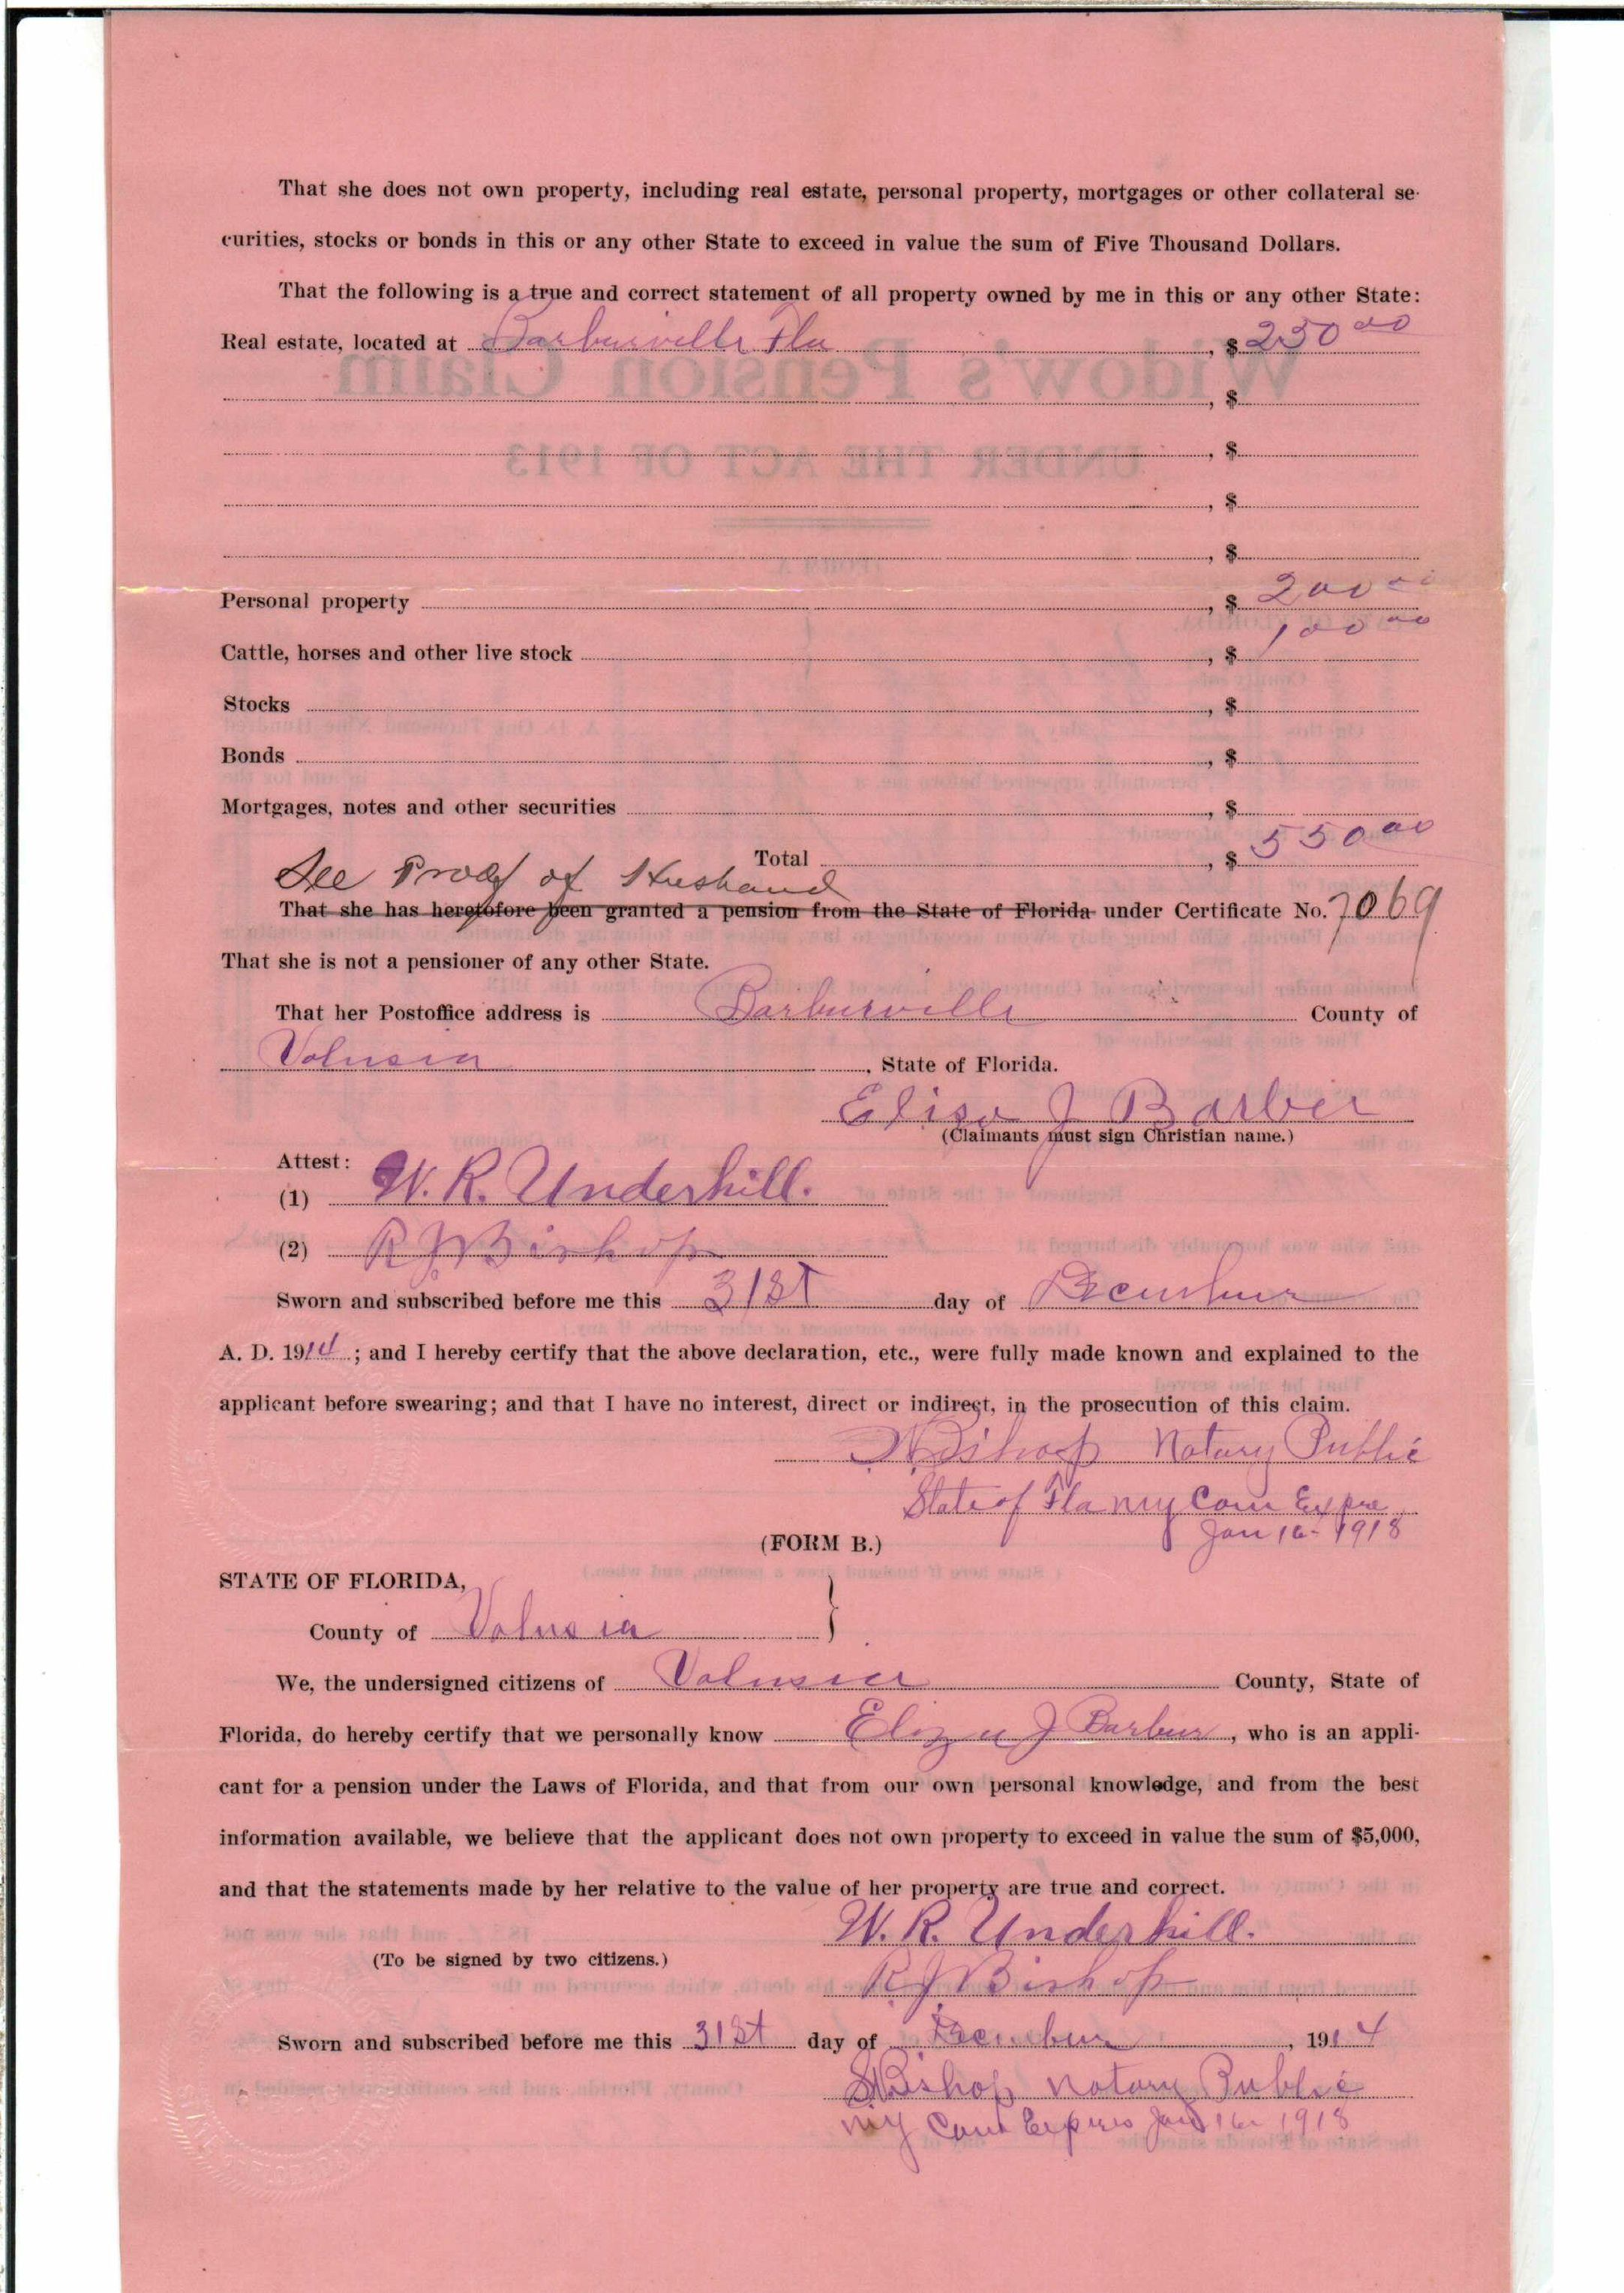 That she does not own property, including real estate, personal property, mortgages or other collateral se-
curities, stocks or bonds in this or any other State to exceed in value the sum of Five Thousand Dollars.
That the following is a true and correct statement of all property owned by me in this or any other State:
Real estate, located at Barburville Fla , $ 250 00
Widow's Pension Claim
, $
UNDER THE ACT OF 1913
, $
, $
, $
Personal property , $ 200 00
Cattle, horses and other live stock , $ 100 00
Stocks , $
Bonds , $
Mortgages, notes and other securities , $
Total , $ 550 00
See Proof of Husband
That she has heretofore been granted a pension from the State of Florida under Certificate No. 7069
That she is not a pensioner of any other State.
That her Postoffice address is Barburville County of
Volusia , State of Florida.
Eliza J Barber
(Claimants must sign Christian name.)
Attest:
(1) W. R. Underhill.
(2) R J Bishop
Sworn and subscribed before me this 31st day of December
A. D. 1914 ; and I hereby certify that the above declaration, etc., were fully made known and explained to the
applicant before swearing; and that I have no interest, direct or indirect, in the prosecution of this claim.
Bishop Notary Public
State of Fla my Com Expre
Jan 16- 1918
(FORM B.)
STATE OF FLORIDA,
County of Volusia }
We, the undersigned citizens of Volusia County, State of
Florida, do hereby certify that we personally know Eliza J Barbur , who is an appli-
cant for a pension under the Laws of Florida, and that from our own personal knowledge, and from the best
information available, we believe that the applicant does not own property to exceed in value the sum of $5,000,
and that the statements made by her relative to the value of her property are true and correct.
W. R. Underhill.
(To be signed by two citizens.)
R J Bishop
Sworn and subscribed before me this 31st day of December , 1914
Bishop Notary Public
My Com Expires Jan 16- 1918